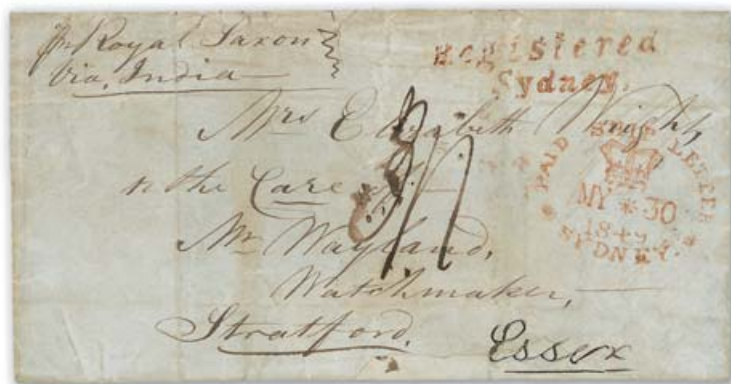 Pr Royal Saxon
Via, India
Registered
Sydney.
Mrs Elizabeth Wright,
to the Care of
Mr Wayland,
Watchmaker,
Stratford,
Essex
PAID SHIP LETTER
MY * 30
SYDNEY